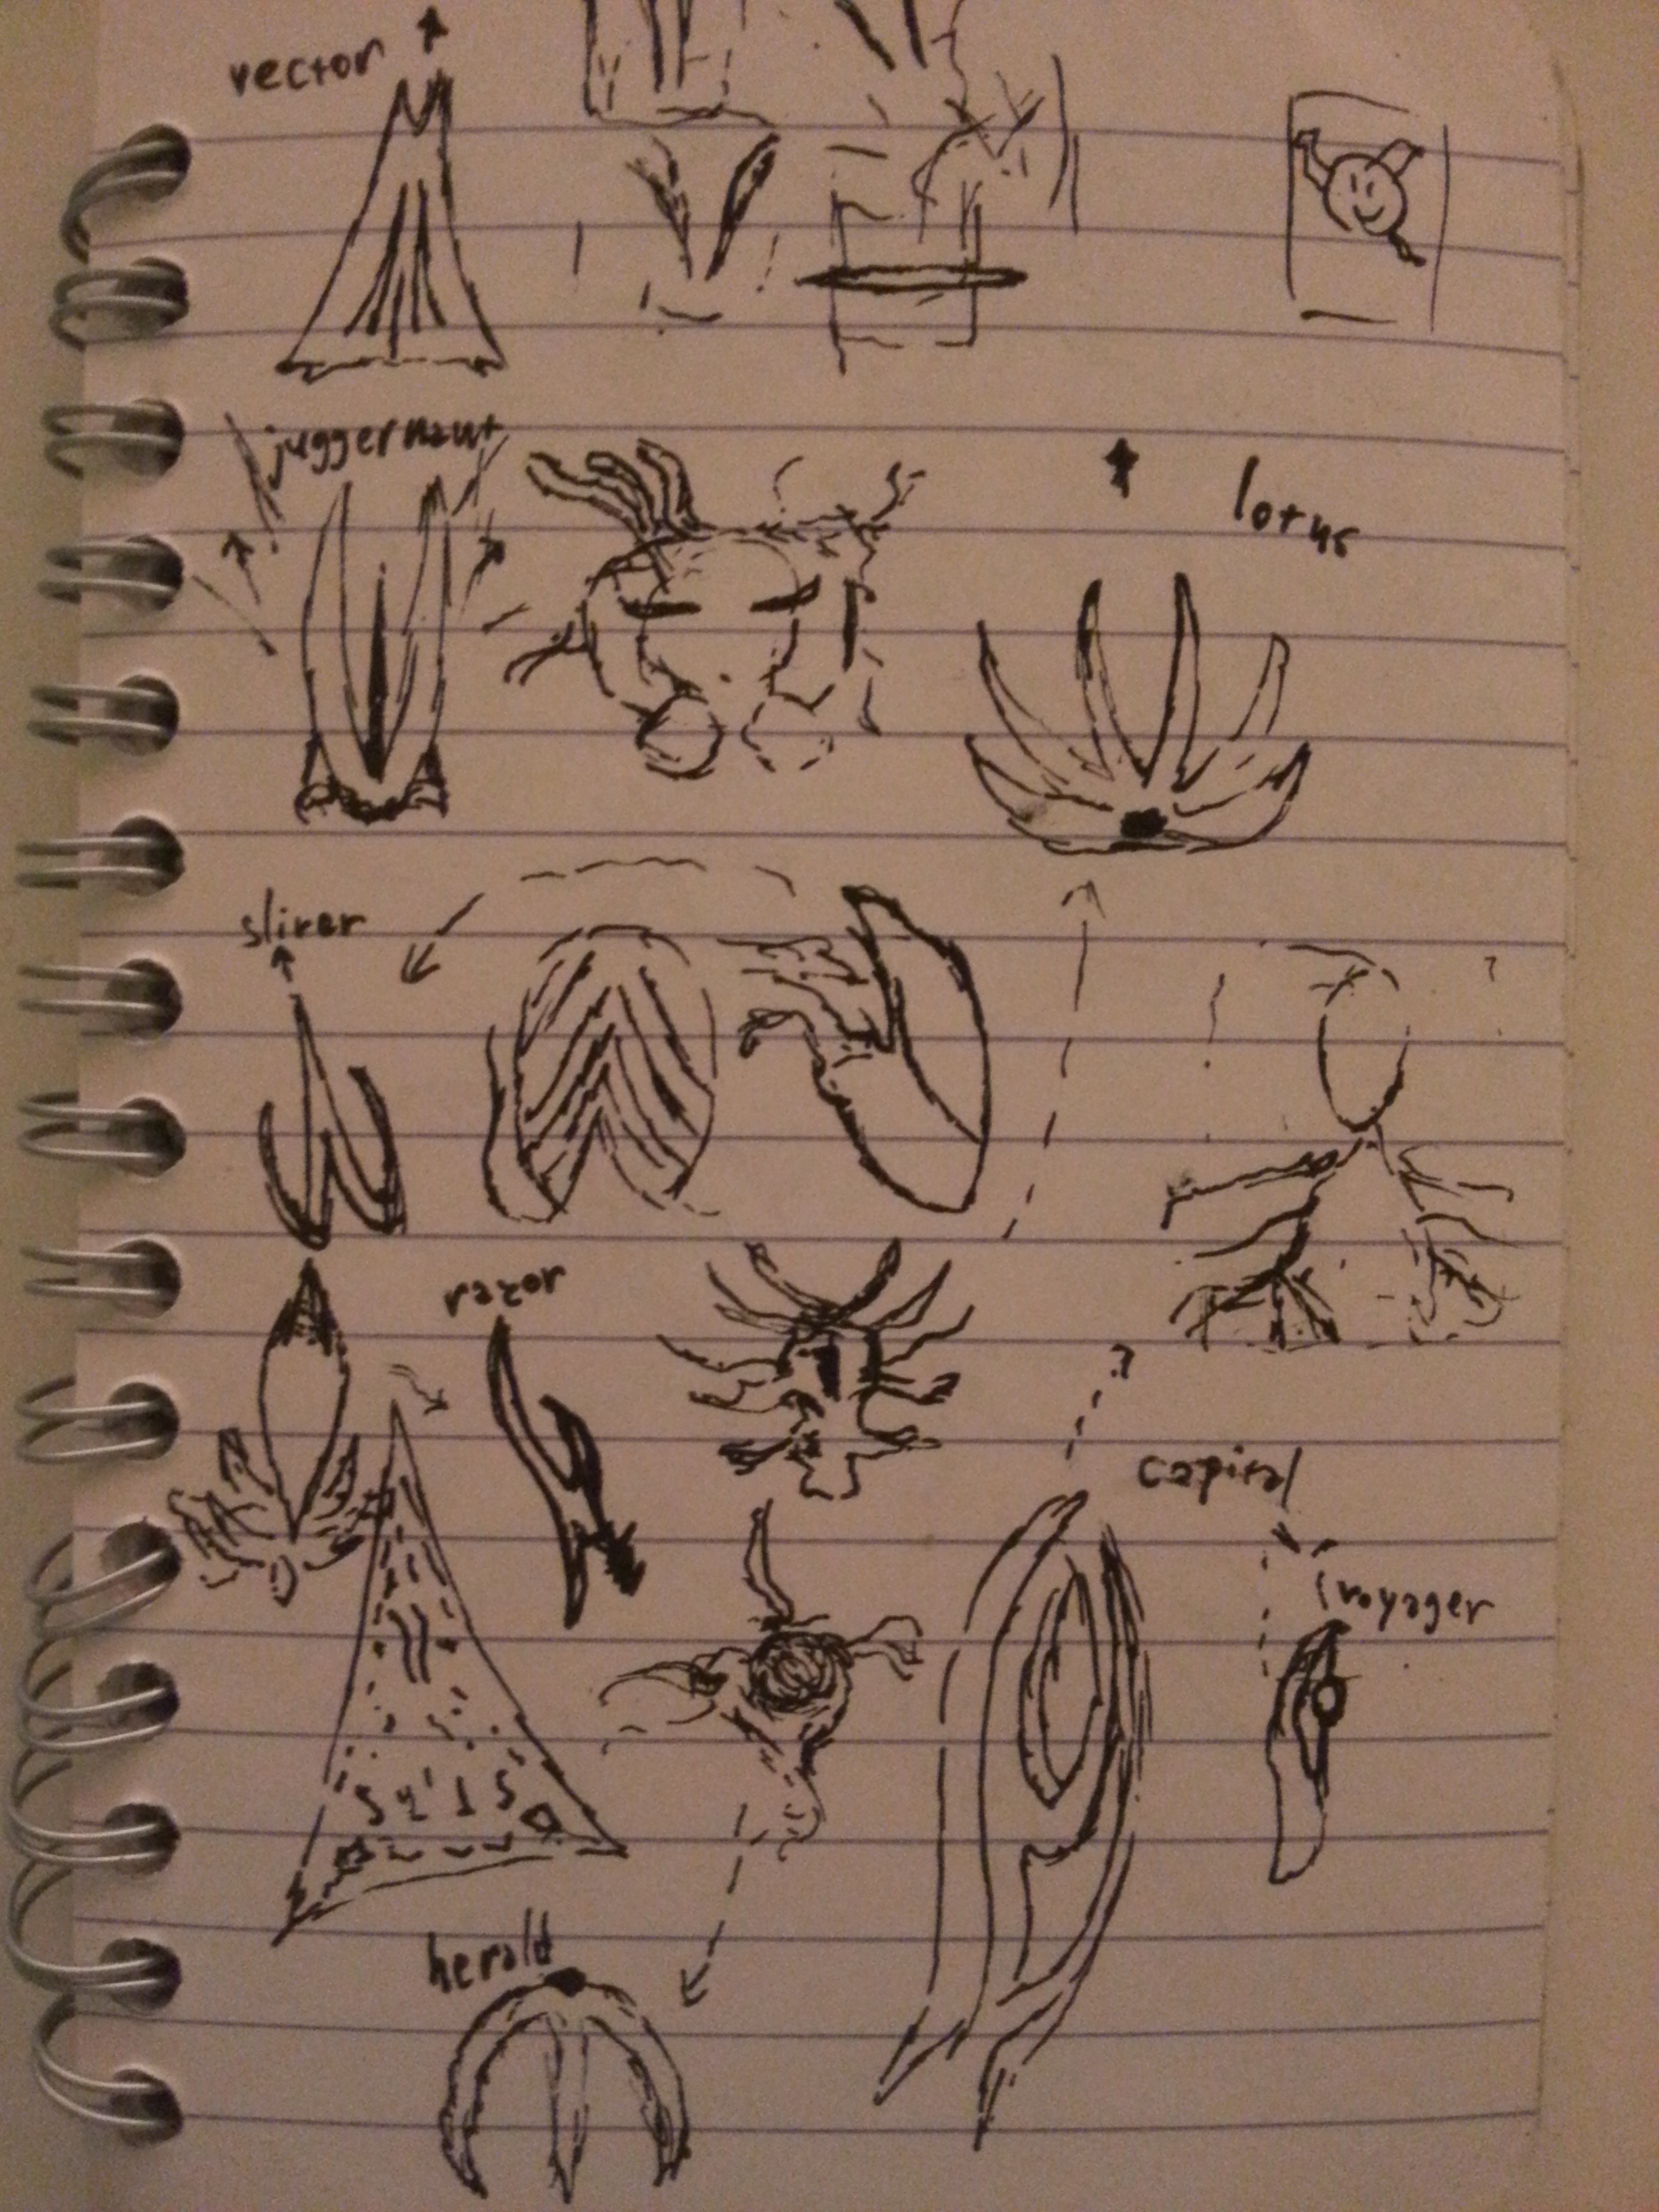 vector
juggernaut
lotus
sliver
razor
capital
voyager
herald